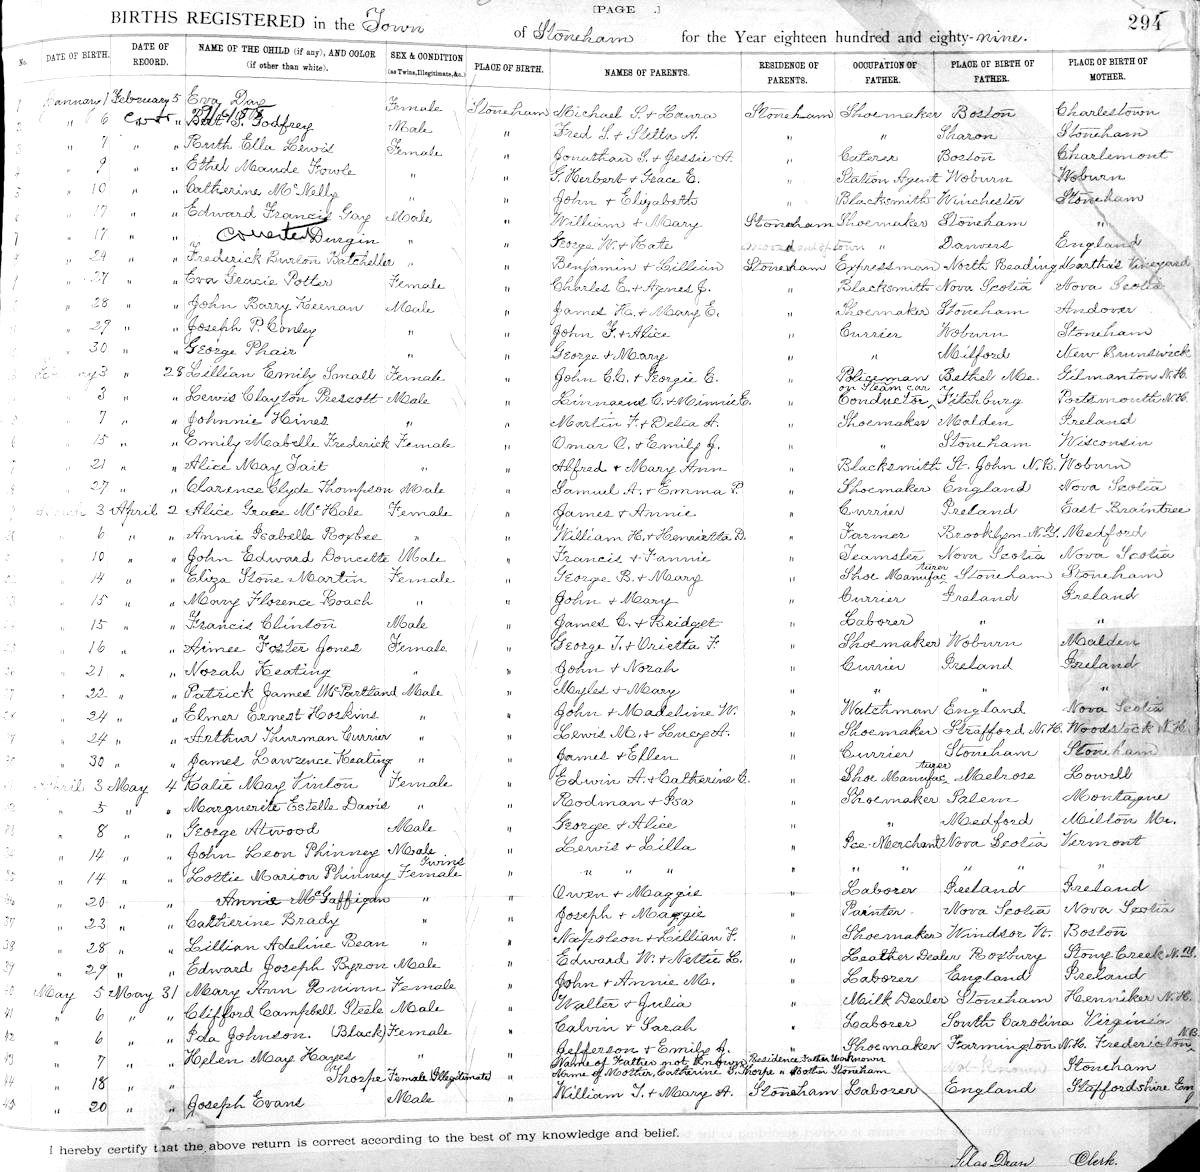 [PAGE .]
BIRTHS REGISTERED in the Town of Stoneham for the Year eighteen hundred and eighty-nine. 294
No. DATE OF BIRTH. DATE OF RECORD. NAME OF THE CHILD (if any), AND COLOR (if other than white). SEX & CONDITION (as Twins, Illegitimate, &c.) PLACE OF BIRTH. NAMES OF PARENTS. RESIDENCE OF PARENTS. OCCUPATION OF FATHER. PLACE OF BIRTH OF FATHER. PLACE OF BIRTH OF MOTHER.
1 January 1 February 5 Eva Day Female Stoneham Michael S. & Laura Stoneham Shoemaker Boston Charlestown
2 " 6 " S. Godfrey Male " Fred S. & Stella A. " " Sharon Stoneham
3 " 7 " " Ruth Ella Lewis Female " Jonathan S. & Jessie A. " Caterer Boston Charlemont
4 " 9 " " Ethel Maude Fowle " " G. Herbert & Grace E. " Station Agent Woburn Woburn
5 " 10 " " Catherine McNelly " " John & Elizabeth " Blacksmith Winchester Stoneham
6 " 17 " " Edward Francis Gay Male " William & Mary Stoneham Shoemaker Stoneham "
" 17 " " Corrected Durgin " " George W. & Kate moved out of town " Danvers England
" 24 " " Frederick Burton Batcheller " " Benjamin & Lillian Stoneham Expressman North Reading Martha's Vineyard
" 27 " " Eva Gracie Potter Female " Charles E. & Agnes J. " Blacksmith Nova Scotia Nova Scotia
" 28 " " John Barry Keenan Male " James H. & Mary E. " Shoemaker Stoneham Andover
" 29 " " Joseph P. Conley " " John F. & Alice " Currier Woburn Stoneham
" 30 " " George Phair " " George & Mary " " Milford New Brunswick
February 3 " 28 Lillian Emily Small Female " John C.C. & Georgie E. " Policeman Bethel Me. Gilmanton N.H.
" 3 " " Lewis Clayton Prescott Male " Linnaeus C. & Minnie E. " Conductor on Steam car Fitchburg Portsmouth N.H.
" 7 " " Johnnie Hines " " Martin F. & Delia A. " Shoemaker Malden Ireland
" 15 " " Emily Mabelle Frederick Female " Omar O. & Emily J. " " Stoneham Wisconsin
" 21 " " Alice May Tait " " Alfred & Mary Ann " Blacksmith St. John N.B. Woburn
" 27 " " Clarence Clyde Thompson Male " Samuel A. & Emma P. " Shoemaker England Nova Scotia
March 3 April 2 Alice Grace McHale Female " James & Annie " Currier Ireland East Braintree
" 6 " " Annie Isabelle Roxbee " " William H. & Henrietta D. " Farmer Brooklyn N.Y. Medford
" 10 " " John Edward Doncette Male " Francis & Fannie " Teamster Nova Scotia Nova Scotia
" 14 " " Eliza Stone Martin Female " George B. & Mary " Shoe Manufacturer Stoneham Stoneham
" 15 " " Mary Florence Roach " " John & Mary " Currier Ireland Ireland
" 15 " " Francis Clinton Male " James C. & Bridget " Laborer " "
25 " 16 " " Aimee Foster Jones Female " George T. & Orietta F. " Shoemaker Woburn Malden
26 " 21 " " Norah Keating " " John & Norah " Currier Ireland Ireland
27 " 22 " " Patrick James McPartland Male " Myles & Mary " " " "
28 " 24 " " Elmer Ernest Hoskins " " John & Madeline W. " Watchman England Nova Scotia
" 24 " " Arthur Thurman Currier " " Lewis M. & Lucy A. " Shoemaker Strafford N.H. Woodstock N.H.
30 " 30 " " James Lawrence Keating " " James & Ellen " Currier Stoneham Stoneham
April 3 May 4 Katie May Vinton Female " Edwin A. & Catherine C. " Shoe Manufacturer Melrose Lowell
" 5 " " Marguerite Estelle Davis " " Rodman & Isa " Shoemaker Salem Montague
33 " 8 " " George Atwood Male " George & Alice " " Medford Milton Me.
34 " 14 " " John Leon Phinney Male " Lewis & Lilla " Ice-Merchant Nova Scotia Vermont
35 " 14 " " Lottie Marion Phinney Female Twins " " " " " " " "
36 " 20 " " Annie McGaffigan " " Owen & Maggie " Laborer Ireland Ireland
37 " 23 " " Catherine Brady " " Joseph & Maggie " Painter. Nova Scotia Nova Scotia
38 " 28 " " Lillian Adeline Bean " " Napoleon & Lillian F. " Shoemaker Windsor Vt. Boston
39 " 29 " " Edward Joseph Byron Male " Edward W. & Nettie L. " Leather Dealer Roxbury Stony Creek N.Y.
40 May 5 May 31 Mary Ann Quinn Female " John & Annie M. " Laborer England Ireland
41 " 6 " " Clifford Campbell Steele Male " Walter & Julia " Milk Dealer Stoneham Henniker N.H.
42 " 6 " " Ida Johnson. (Black) Female " Calvin & Sarah " Laborer South Carolina Virginia
43 " 7 " " Helen May Hayes " " Jefferson & Emily J. " Shoemaker Farmington N.H. Fredericton N.B.
44 " 18 " " Thorpe Female Illegitimate " Name of Father not Known Name of Mother, Catherine E. Thorpe Residence Father Unknown " Mother Stoneham Not Known Stoneham
45 " 20 " " Joseph Evans Male " William T. & Mary A. Stoneham Laborer England Staffordshire Eng
I hereby certify that the above return is correct according to the best of my knowledge and belief.
Silas Dean Clerk.